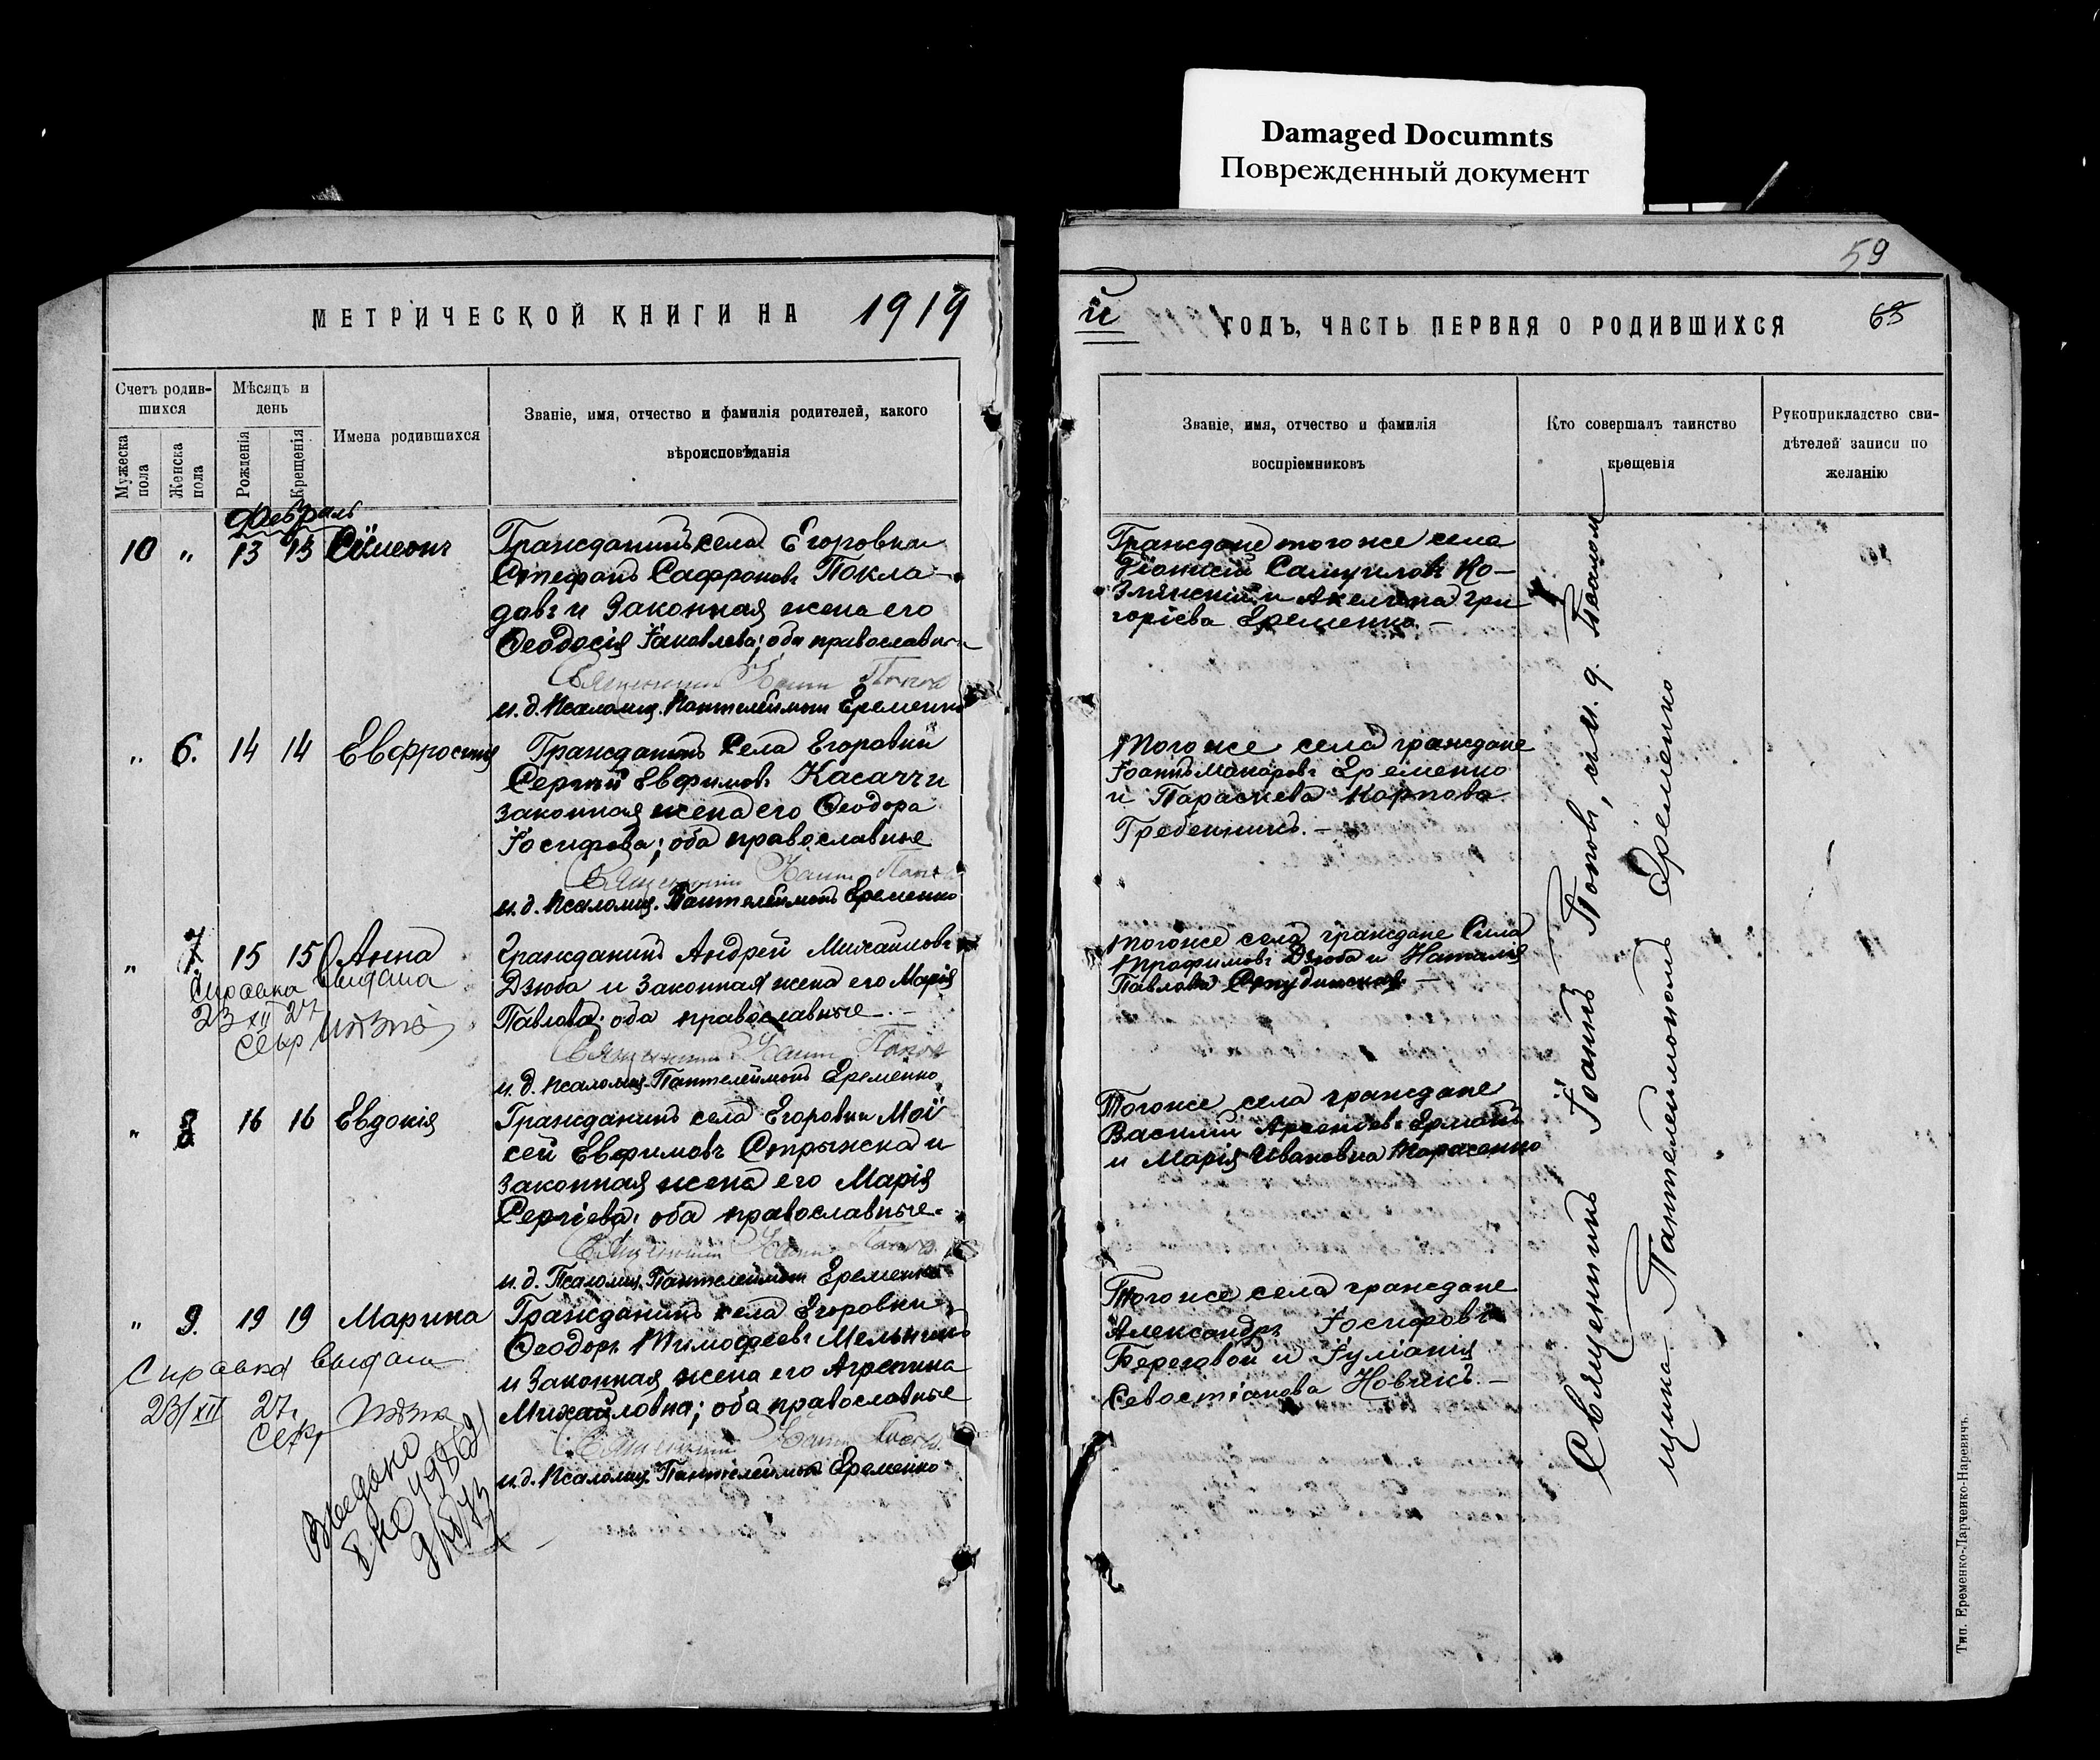 Damaged Documnts
Поврежденный документ
МЕТРИЧЕСКОЙ КНИГИ НА 1919
Счетъ родив-
шихся
Мужеска
пола
Женска
пола
Мѣсяцъ и
день
Рожденія
Крещенія
Имена родившихся
Званіе, имя, отчество и фамилія родителей, какого
вѣроисповѣданія
Февраль
10 " 13 13 Сѵмеонъ
Гражданинъ села Егоровки
Стефанъ Сафроновъ Покла-
довъ и законная жена его
Ѳеодосія Іаковлева; оба православн
Священникъ Іоаннъ Поповъ
и. д. Псаломщ. Пантелеймонъ Еременко
" 6. 14 14 Евфросинія
Гражданинъ села Егоровки
Сергѣй Евфимовъ Касачъ и
законная жена его Ѳеодора
Іосифова; оба православные
Священникъ Іоаннъ Поповъ
и. д. Псаломщ. Пантелеймонъ Еременко
" 7. 15 15 Анна
Справка выдана
23 XII 27
Секр
Гражданинъ Андрей Михайловъ
Дзюба и законная жена его Марія
Павлова; оба православные. –
Священникъ Іоаннъ Поповъ
и. д. псаломщ. Пантелеймонъ Еременко
" 8 16 16 Евдокія
Гражданинъ села Егоровки Мої
сей Евфимовъ Стрыжска и
законная жена его Марія
Сергіева; оба православные.
Священникъ Іоаннъ Поповъ
и. д. Псаломщ. Пантелеймонъ Еременко
" 9. 19 19 Марина
Справка выдана
23/XII 27.
Секр
Гражданинъ села Егоровки
Ѳеодоръ Тимоѳеевъ Мельникъ
и законная жена его Агрепина
Михайловна; оба православные
Священникъ Іоаннъ Поповъ
и. д. Псаломщ. Пантелеймонъ Еременко
59
й
ГОДЪ, ЧАСТЬ ПЕРВАЯ О РОДИВШИХСЯ
Званіе, имя, отчество и фамилія
воспріемниковъ
Кто совершалъ таинство
крещенія
Рукоприкладство сви-
дѣтелей записи по
желанію
Граждане того же села
Самуиловъ Ко-
злянскій и Акелина Гри
горіева Еременко. –
Того же села граждане
Іоаннъ Макаровъ Еременко
и Параскева Карпова
Гребенникъ. –
Того же села граждане Сила
Трофимовъ Дзюба и Наталія
Павлова
Того же села граждане
Василий Арсеніевъ
и Марія Ивановна Тарасенко
Того же села граждане
Александръ Іосифовъ
Береговой и Іуліанія
Севостіанова Новикъ. –
Священникъ Іоаннъ Поповъ, и и. д. Псалом
щика Пантелеимонъ Еременко
Тип. Еременко-Ларченко-Наревичъ.